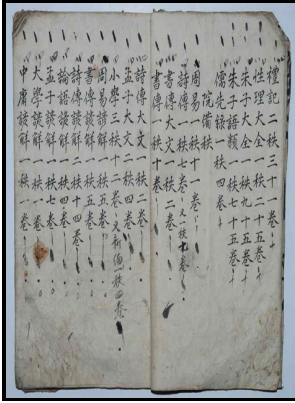 禮記二秩三十一卷
性理大全一秩二十五卷
朱子大全一秩九十五卷
朱子語類一秩七十五卷
儒先録一秩四卷
院備秩
周易一秩十一卷
詩傳一秩七卷
書傳大文一秩二卷
書傳一秩十卷
詩傳大文一秩二卷
孟子大文二秩四卷
小學三秩十二卷
周易諺解一秩五卷
書傳諺解一秩五卷
詩傳諺解二秩十四卷
論語諺解一秩四卷
孟子諺解一秩
大學諺解一秩一卷
中庸諺解一秩一卷